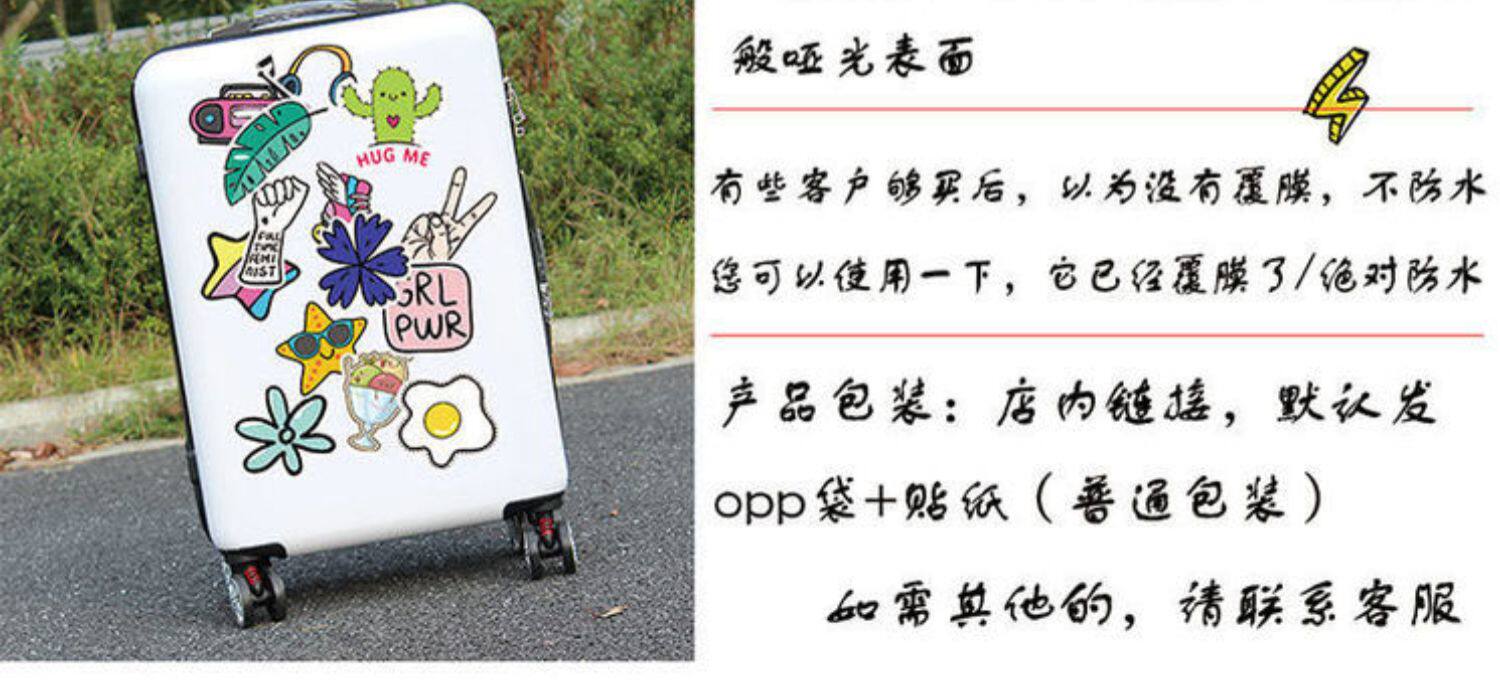 HUG ME
FULL
TIME
FEMI
NIST
GRL
PWR
般哑光表面
有些客户够买后，以为没有覆膜，不防水
您可以使用一下，它已经覆膜了/绝对防水
产品包装：店内链接，默认发
opp袋+贴纸（普通包装）
如需其他的，请联系客服